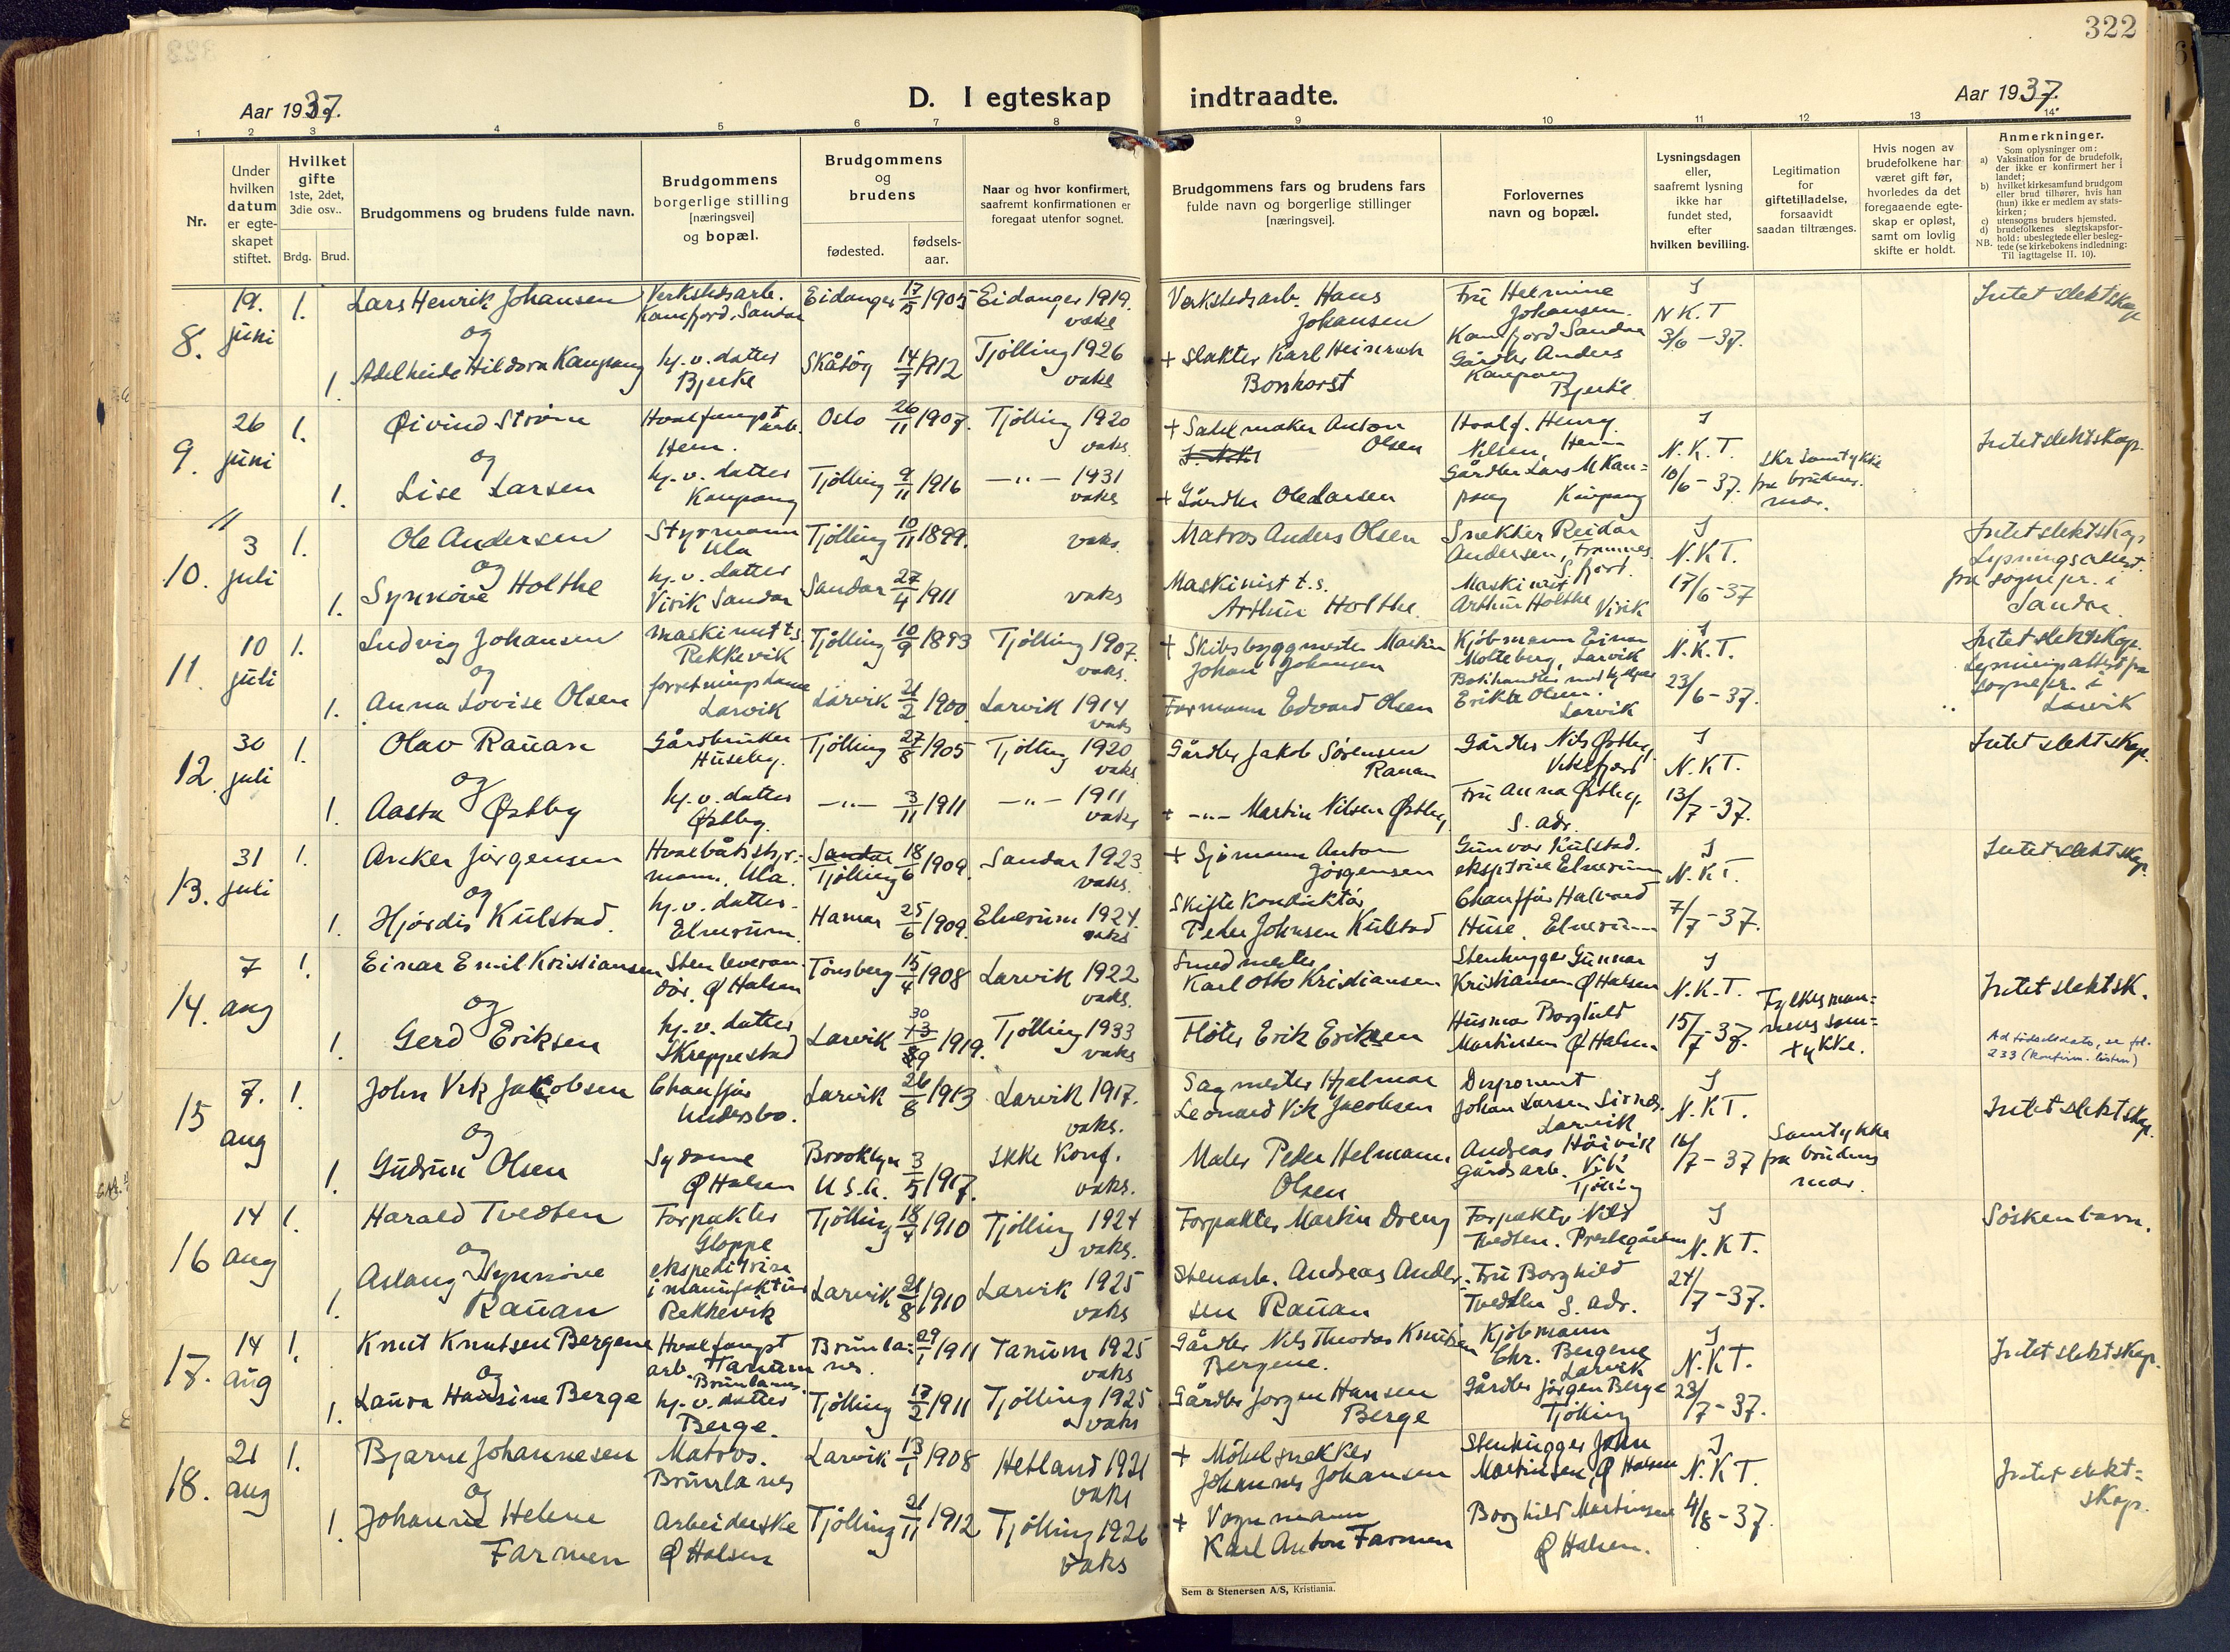 322
Aar 1937.
D. I egteskap
indtraadte.
Aar 1937.
1 2 3 4 5 6 7 8 9 10 11 12 13 14
Nr.
Under hvilken datum er egte-skapet stiftet.
Hvilket gifte
1ste, 2det, 3die osv..
Brdg. Brud.
Brudgommens og brudens fulde navn.
Brudgommens borgerlige stilling [næringsvei] og bopæl.
Brudgommens og brudens
fødested.
fødsels-aar.
Naar og hvor konfirmert, saafremt konfirmationen er foregaat utenfor sognet.
Brudgommens fars og brudens fars fulde navn og borgerlige stillinger [næringsvei].
Forlovernes navn og bopæl.
Lysningsdagen eller, saafremt lysning ikke har fundet sted, efter hvilken bevilling.
Legitimation for giftetilladelse, forsaavidt saadan tiltrænges.
Hvis nogen av brudefolkene har været gift før, hvorledes da det foregaaende egte-skap er opløst, samt om lovlig skifte er holdt.
Anmerkninger.
Som oplysninger om:
a) Vaksination for de brudefolk, der ikke er konfirmert her i landet;
b) hvilket kirkesamfund brudgom eller brud tilhører, hvis han (hun) ikke er medlem av stats-kirken;
c) utensogns bruders hjemsted.
d) brudefolkenes slegtskapsfor-hold: ubeslegtede eller besleg-tede (se kirkebokens indledning:
NB. Til iagttagelse II. 10).
8. 19. juni 1. Lars Henrik Johansen Verkstedsarb. Kamfjord, Sandar Eidanger 17/5 1905 Eidanger 1919. vaks Verkstedsarb. Hans Johansen Fru Helmine Johansen. Kamfjord Sandar I N K. T 3/6 - 37. Intet slektskap
og
1. Adelheide Hildora Kaupang hj. v. datter Bjerke Skåtøy 14/7 1912 Tjølling 1926 vaks + Slakter Karl Heinrich Bonhorst Gårdbr Anders Kaupang Bjerke
9. 26 juni 1. Øivind Strøm Hvalfangst arb. Hem. Oslo 26/11 1907. Tjølling 1920 vaks + Salmaker Anton Olsen Hvalf. Henry Nilsen, Hem I N. K. T. 10/6 - 37. Skr samtykke fra brudens mor. Intet slektskap.
og
1. Lise Larsen hj. v. datter Kaupang Tjølling 9/11 1916 —"— 1931 vaks + Gårdbr Ole Larsen Gårdbr Lars M Kaupang Kaupang
10. 3 juli 1. Ole Andersen Styrmann Ula Tjølling 10/11 1899. vaks. Matros Anders Olsen Snekker Reidar Andersen, Framnes S fjord. I N. K. T. 17/6 - 37 Intet slektskap Lysningsattest. fra sognepr. i Sandar.
og
1. Synnøve Holthe hj. v. datter Virik Sandar Sandar 27/4 1911 vaks Maskinist t. s. Arthur Holthe. Maskinist Arthur Holthe Virik
11. 10 juli 1. Ludvig Johansen maskinist t.s. Rekkevik Tjølling 10/9 1893 Tjølling 1907. vaks. + Skibsbyggmester Martin Johan Johansen Kjøbmann Einar Molteberg, Larvik I N. K. T. 23/6 - 37. Intet slektskap. Lysningsattest fra sognepr. i Larvik
og
1. Anna Lovise Olsen forretningsdame Larvik Larvik 21/2 1900 Larvik 1914 vaks Formann Edvard Olsen Erikka Olsen. Larvik
12. 30 juli 1. Olav Rauan Gårdbruker Huseby. Tjølling 27/8 1905 Tjølling 1920 vaks Gårdbr Jakob Sørensen Rauan Gårdbr Nils Østby, I N. K T. 13/7 - 37. Intet slektskap.
og
1. Aasta Østby hj. v. datter Østby. —"— 3/11 1911 —"— 1911 vaks + —"— Martin Nilsen Østby Fru Anna Østby, S. adr.
13. 31 juli 1. Anker Jørgensen Hvalbåtstyr-mann. Ula. Sandar Tjølling 18/6 1909. Sandar 1923. vaks. + Sjømann Anton Jørgensen Gunvor Kulstad. Elverum I N. K T. 7/7 - 37. Intet slektskap.
og
1. Hjørdis Kulstad. hj. v. datter. Elverum. Hamar 25/6 1909. Elverum 1924. vaks Skifte konduktør Peder Johnsen Kulstad Chauffør Halvard Huse, Elverum
14. 7 aug 1. Einar Emil Kristiansen Stenleveran-dør. Ø Halsen Tønsberg 15/4 1908 Larvik 1922 vaks. Smedmester Karl Otto Kristiansen Stenhugger Gunnar Kristiansen Ø Halsen I N. K. T. 15/7 - 37. Fylkesman-nens sam-tykke. Intet slektsk.
og
1. Gerd Eriksen hj. v. datter Skreppestad Larvik 30 13/89 1919. Tjølling 1933 vaks Fløter Erik Eriksen Husmor Borghild Martinsen Ø Halsen Ad fødselsdato, se fol. 233 (konfirm. listen)
15 7. aug 1. John Vik Jakobsen Chauffør Undersbo. Larvik 26/8 1913 Larvik 1917. vaks. Sagmester Hjalmar Leonard Vik Jacobsen Disponent Johan Larsen Sirnes. Larvik I N. K T. 16/7 - 37 Samtykke fra brudens mor. Intet slektskap.
og
1. Gudrun Olsen Sydame Ø Halsen Brooklyn U. S. A. 3/5 1917. Ikke konf. vaks. Maler Peder Helmann Olsen Andreas Høivik gårdsarb. Vik Tjølling
16 14 aug 1. Harald Tvedten Forpakter Gloppe Tjølling 18/4 1910 Tjølling 1924 vaks. Forpakter Martin Dreng Forpakter Nils Tvedten. Prestegården I N. K T. 24/7 - 37. Søskenbarn.
og
1. Aslaug Synnøve Rauan ekspeditrise i manufaktur Rekkevik Larvik 21/8 1910 Larvik 1925 vaks Stenarb. Andreas Ander-sen Rauan Fru Borghild Tvedten S. adr.
17. 14 aug 1. Knut Knutsen Bergene Hvalfangst arb. Tanum Brunlanes. Brunla-nes. 29/1 1911 Tanum 1925 vaks Gårdbr Nils Theodor Knutsen Bergene. Kjøbmann Chr. Bergene Larvik I N. K T. 23/7 - 37. Intet slektskap.
og
1. Laura Hansine Berge hj. v. datter Berge. Tjølling 17/2 1911 Tjølling 1925 vaks Gårdbr Jørgen Hansen Berge Gårdbr Jørgen Berge Tjølling
18. 21 aug 1. Bjarne Johannesen Matros. Brunlanes Larvik 13/1 1908 Hetland 1921 vaks + Møbelsnekker Johannes Johansen Stenhugger John Martinsen, Ø Halsen I N. K T. 4/8 - 37. Intet slekt-skap.
og
1. Johanne Helene Farmen Arbeiderske Ø Halsen Tjølling 21/11 1912 Tjølling 1926 vaks + Vognmann Karl Anton Farmen Borghild Martinsen Ø Halsen.
Sem & Stenersen A/S, Kristiania.